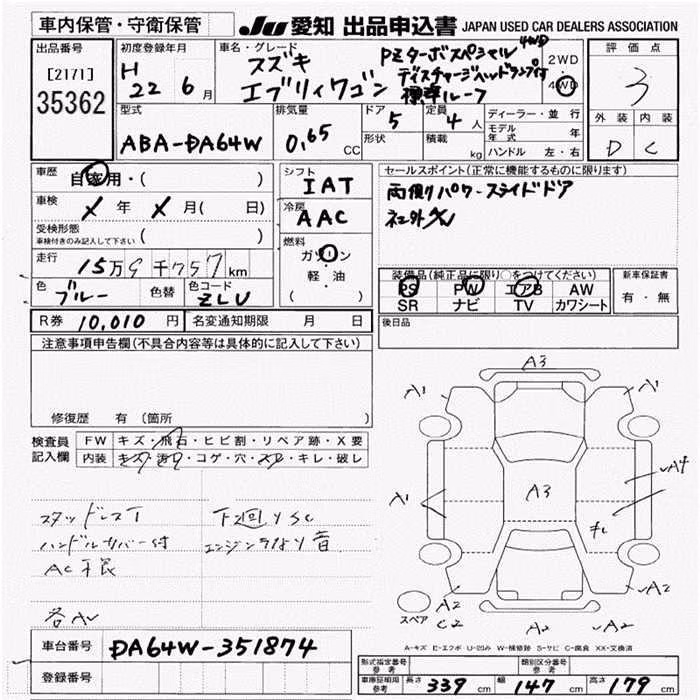 車内保管・守衛保管
JU 愛知 出品申込書 JAPAN USED CAR DEALERS ASSOCIATION
出品番号
[2171]
35362
初度登録年月
H
22 6月
車名・グレード
スズキ
エブリィワゴン
PZターボスペシャル 4WD
ディスチャージヘッドランプ付
標準ルーフ
2WD
4WD
評価点
3
外装 内装
D C
型式
ABA-DA64W
排気量
0.65 CC
ドア
5
形状
定員
4人
積載 kg
ディーラー・並行
モデル年式 年
ハンドル 左・右
車歴
自家用・( )
車検
X年 X月( 日)
受検形態
車検付きのみ記入して下さい ( )
走行
15万9千757km
色
ブルー
色替
色コード
ZLU
シフト
IAT
冷房
AAC
燃料
ガソリン
軽・油
( )
セールスポイント(正常に機能するものに限ります)
両側パワースライドドア
社外
装備品(純正品に限り○をつけてください)
PS PW エアB AW
SR ナビ TV カワシート
新車保証書
有・無
R券 10,010円
名変通知期限 月 日
後日品
注意事項申告欄(不具合内容等は具体的に記入して下さい)
修復歴 有(箇所
検査員
記入欄
FW キズ・飛石・ヒビ割・リペア跡・X要
内装 キズ・汚れ・コゲ・穴・スレ・キレ・破レ
スタッドレスT
ハンドルカバー付
AC不良
各AU
下回りSC
エンジンうなり音
A3
A1
A1
A1
A3
A4
A2
A2
C2
A2
A2
スペア
A-キズ E-エクボ U-凹み W-補修跡 S-サビ C-腐食 XX-交換済
車台番号
DA64W-351874
登録番号
型式指定番号
参考
類別区分番号
参考
車庫証明用
参考
長さ 339cm
幅 147cm
高さ 179cm